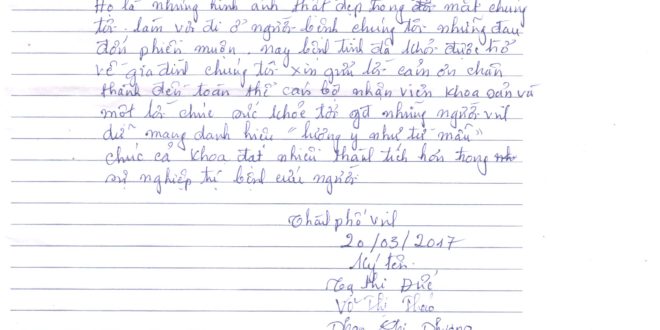 Họ là những hình ảnh thật đẹp trong đôi mắt chúng
tôi. làm vơi đi ở người bệnh chúng tôi những đau
đớn phiền muộn. nay bệnh tình đã khỏi được trở
về gia đình chúng tôi xin gửi lời cảm ơn chân
thành đến toàn thể cán bộ nhân viên khoa sản và
một lời chúc sức khỏe tới gđ những người
mang danh hiệu "lương y như từ mẫu"
chúc cả khoa đạt nhiều thành tích hơn trong
sự nghiệp trị bệnh cứu người
Thành phố
20/03/2017
Ký tên
Tạ Thị Đức
Võ Thị Thảo
Phan Thị Phương